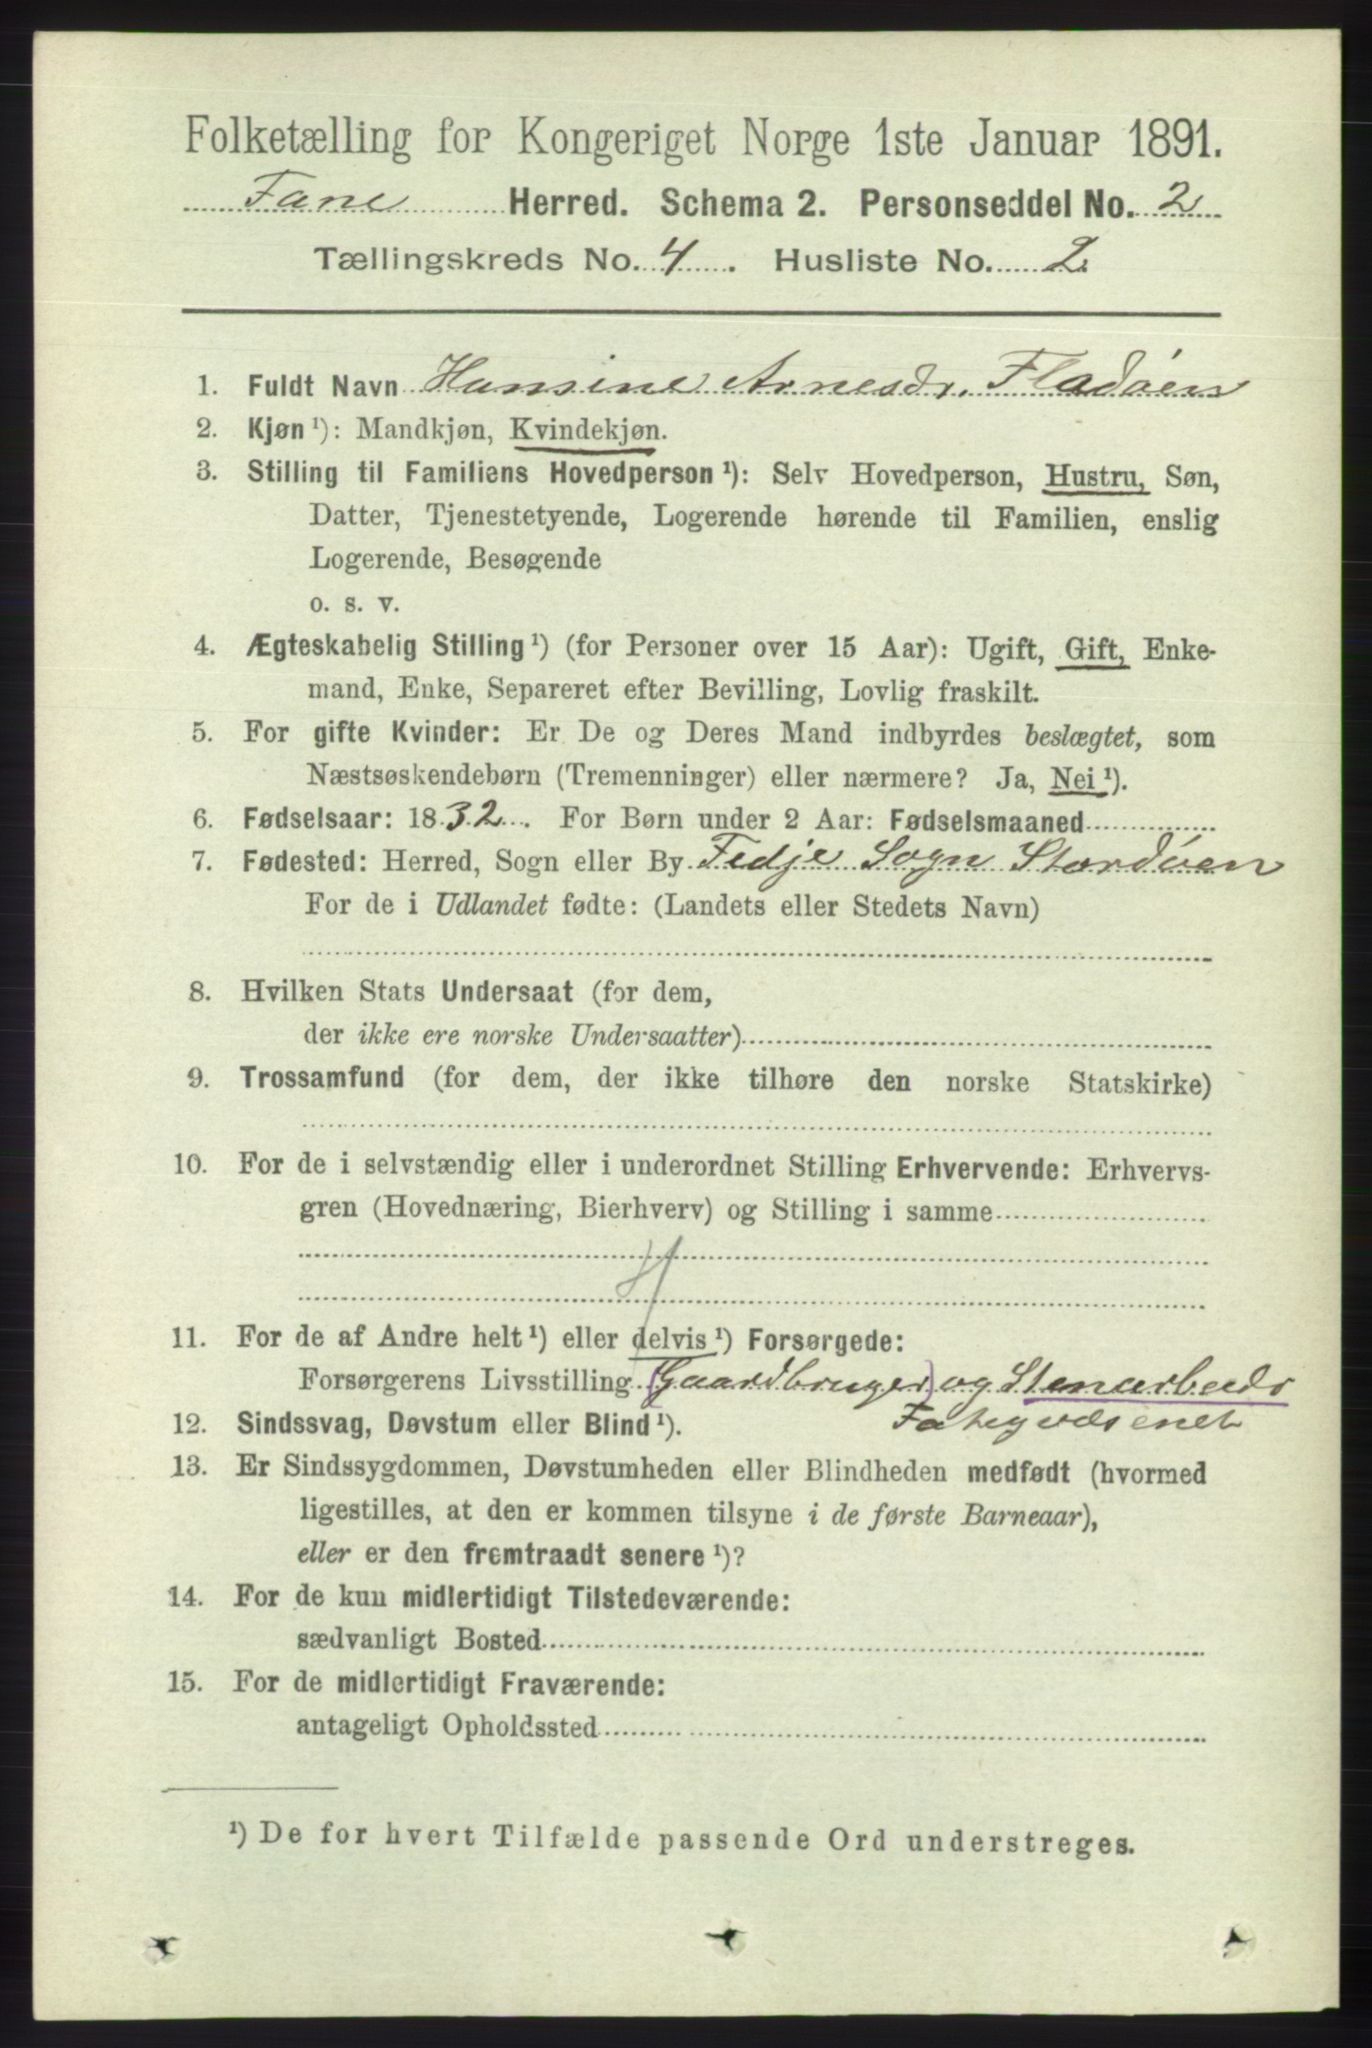 Folketælling for Kongeriget Norge 1ste Januar 1891.
Fane Herred. Schema 2. Personseddel No. 2
Tællingskreds No. 4. Husliste No. 2
1. Fuldt Navn Hansine Arnesdr. Fladöen
2. Kjøn ¹): Mandkjøn, Kvindekjøn.
3. Stilling til Familiens Hovedperson ¹): Selv Hovedperson, Hustru, Søn,
Datter, Tjenestetyende, Logerende hørende til Familien, enslig
Logerende, Besøgende
o. s. v.
4. Ægteskabelig Stilling ¹) (for Personer over 15 Aar): Ugift, Gift, Enke-
mand, Enke, Separeret efter Bevilling, Lovlig fraskilt.
5. For gifte Kvinder: Er De og Deres Mand indbyrdes beslægtet, som
Næstsøskendebørn (Tremenninger) eller nærmere? Ja, Nei ¹).
6. Fødselsaar: 1832. For Børn under 2 Aar: Fødselsmaaned
7. Fødested: Herred, Sogn eller By Fedje Sogn Stordöen
For de i Udlandet fødte: (Landets eller Stedets Navn)
8. Hvilken Stats Undersaat (for dem,
der ikke ere norske Undersaatter)
9. Trossamfund (for dem, der ikke tilhøre den norske Statskirke)
10. For de i selvstændig eller i underordnet Stilling Erhvervende: Erhvervs-
gren (Hovednæring, Bierhverv) og Stilling i samme
11. For de af Andre helt ¹) eller delvis ¹) Forsørgede:
Forsørgerens Livsstilling (Gaardbruger) og Stenarbeidr
12. Sindssvag, Døvstum eller Blind ¹). Fatigvæsenet
13. Er Sindssygdommen, Døvstumheden eller Blindheden medfødt (hvormed
ligestilles, at den er kommen tilsyne i de første Barneaar),
eller er den fremtraadt senere ¹)?
14. For de kun midlertidigt Tilstedeværende:
sædvanligt Bosted
15. For de midlertidigt Fraværende:
antageligt Opholdssted
¹) De for hvert Tilfælde passende Ord understreges.